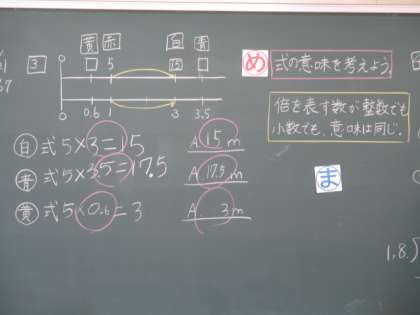 3
黄 赤 白 青
0 □ 5 15 □
0 0.6 1 3 3.5
白 式 5×3=15 A 15m
青 式 5×3.5=17.5 A 17.5m
黄 式 5×0.6=3 A 3m
め 式の意味を考えよう。
倍を表す数が整数でも
小数でも、意味は同じ。
ま